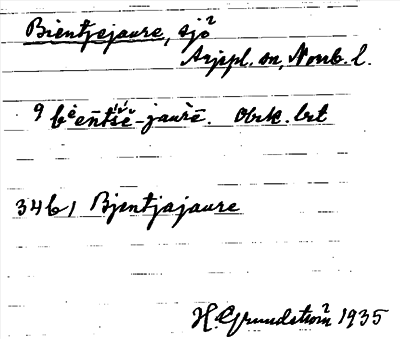 Bientjejaure, sjö
Arjepl. sn, Norrb. l.
9 bi̯e̅ntšē-jaùrē. Obrk. bet
34 b 1 Bjentjajaure
H. Grundström 1935